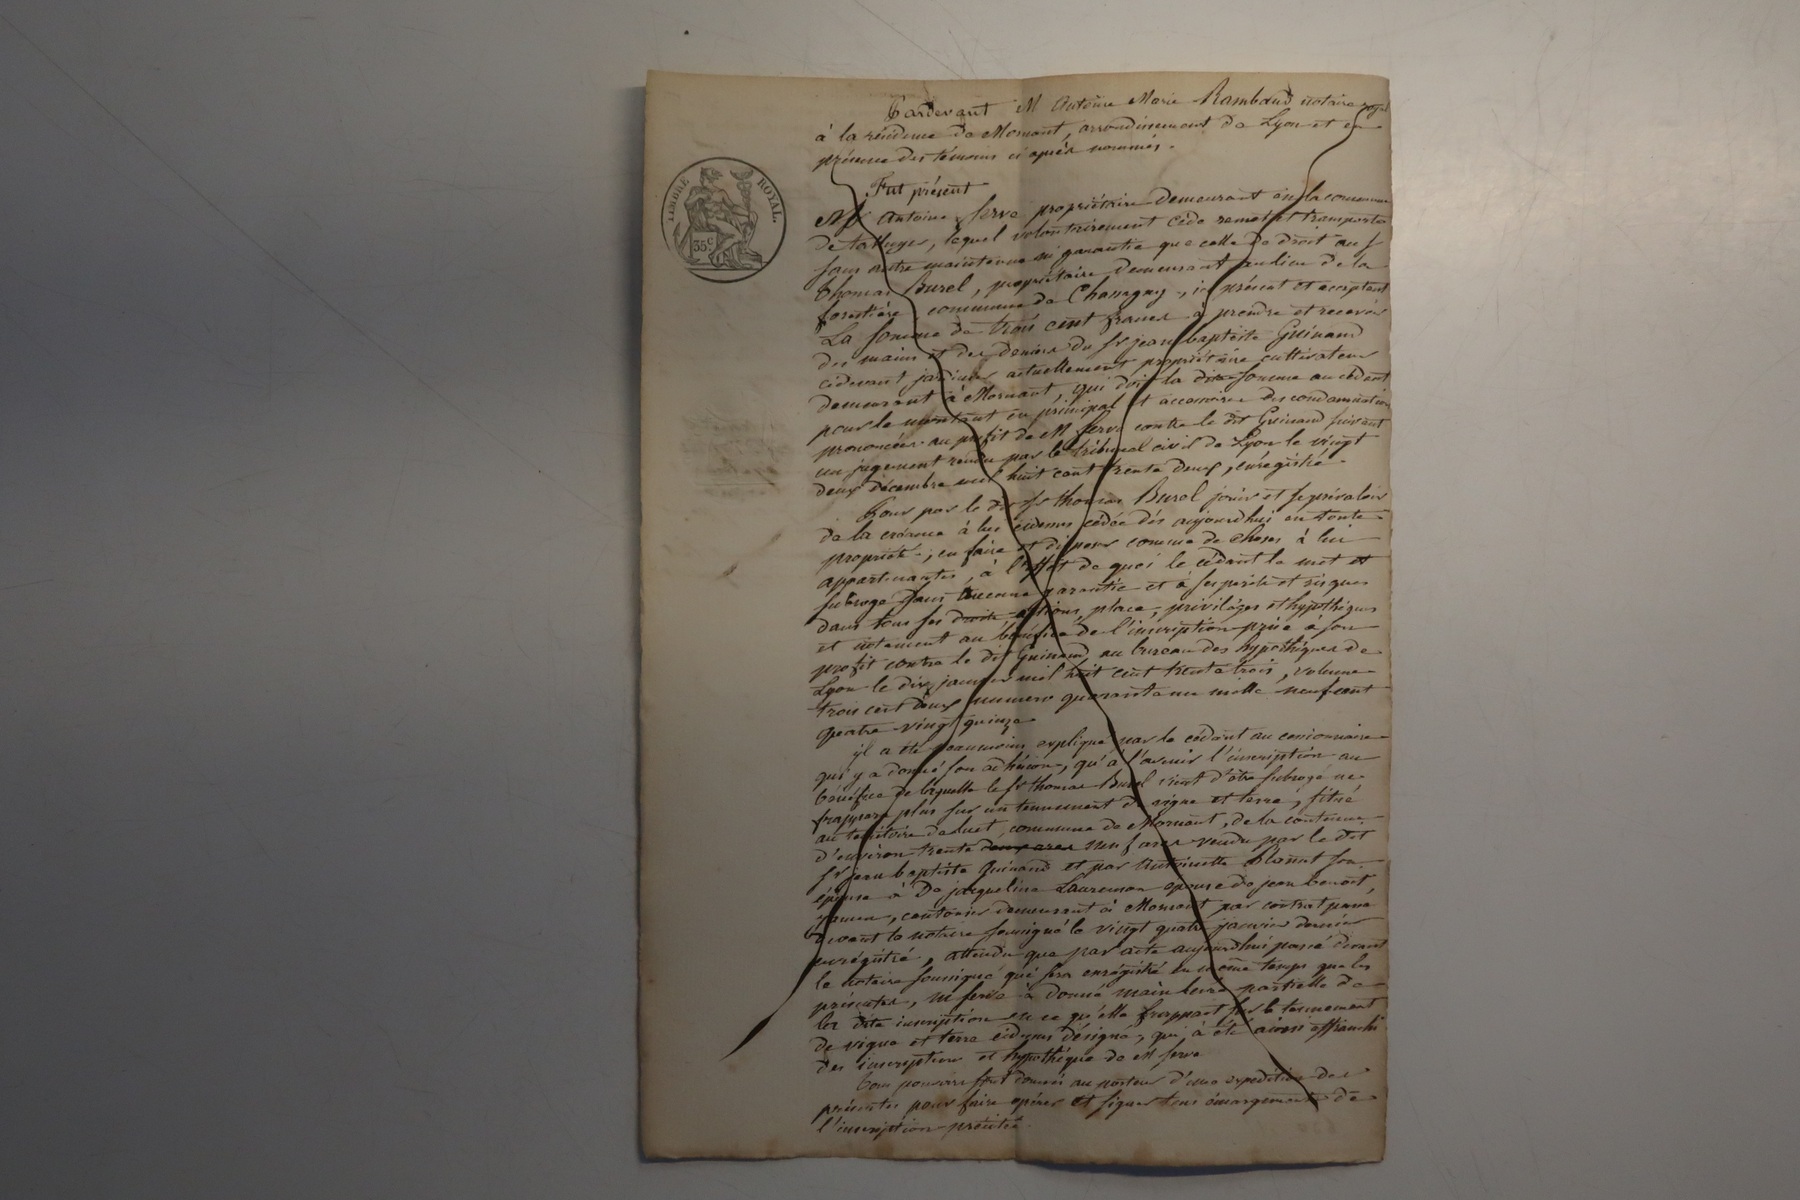 Pardevant M Antoine Marie Rambaud notaire royal
à la résidence de Mornant, arrondissement de Lyon et en
présence des témoins ci après nommés.
TIMBRE ROYAL
35 c
Fut présent
Mr Antoine Serve propriétaire demeurant en la commune
de taluyer, lequel volontairement cède remet et transporte
sans autre maintenue ni garantie que celle de droit au sr
thomas Burel, propriétaire demeurant au lieu de la
forestière, commune de Chassagny, ici présent et acceptant
La somme de trois cent francs à prendre et recevoir
des mains et des deniers du sr jean baptiste Guinand
cidevant jardinier actuellement propriétaire cultivateur
demeurant à Mornant, qui doit la dite somme au cédant
pour le montant en principal et accessoires des condamnations
prononcées au profit de M Serve contre le dit Guinand suivant
un jugement rendu par le tribunal civil de Lyon le vingt
deux décembre mil huit cent trente deux, enregistré.
Pour par le dit sr thomas Burel jouir et se prévaloir
de la créance à lui cidessus cédée dès aujourdhui en toute
propriété, en faire et disposer comme de choses à lui
appartenantes, à l'effet de quoi le cédant le met et
subroge sans aucune garantie et à ses périls et risques
dans tous ses droits actions, place, privilèges et hypothèques
et notament au bénéfice de l'inscription prise à son
profit contre le dit Guinand au bureau des hypothèques de
Lyon le dix janvier mil huit cent trente trois, volume
trois cent deux numéro quarante un mille neuf cent
quatre vingt quinze
il a été néanmoins expliqué par le cédant au cessionnaire
qui y a donné son adhésion, qu'à l'avenir l'inscription au
bénéfice de laquelle le sr thomas Burel vient d'être subrogé ne
frappera plus sur un tennement de vigne et terre, situé
au territoire de luet, commune de Mornant, de la contenue
d'environ trente deux ares neuf ares vendu par le dit
sr jean baptiste Guinand et par Antoinette son
épouse à De jacqueline Laurenson épouse de jean benoit
, cantonier demeurant à Mornant par contrat passé
devant le notaire soussigné le vingt quatre janvier dernier
enrégistré, attendu que par acte aujourdhui passé devant
le notaire soussigné qui sera enrégistré en même temps que les
présentes, m serve à donné main levée partielle de
la dite inscription en ce qu'elle frappait sur le tennement
de vigne et terre cidessus désigné, qui à été ainsi affranchi
des inscription et hypothèque de M serve
Tous pouvoirs sont donnés au porteur d'une expédition des
présentes pour faire opérer et signer tous émargements de
l'inscription précitée.